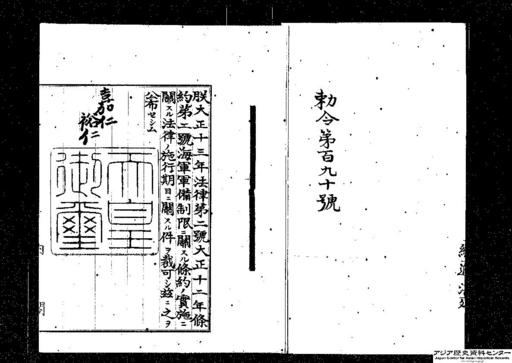 勅令第百九十號
朕大正十三年法律第二號大正十二年條
約第二號海軍軍備制限ニ關スル條約ノ實施ニ
關スル法律ノ施行期日ニ關スル件ヲ裁可シ玆ニ之ヲ
公布セシム
嘉仁
裕仁
天皇
御璽
内閣
アジア歴史資料センター
Japan Center for Asian Historical Records